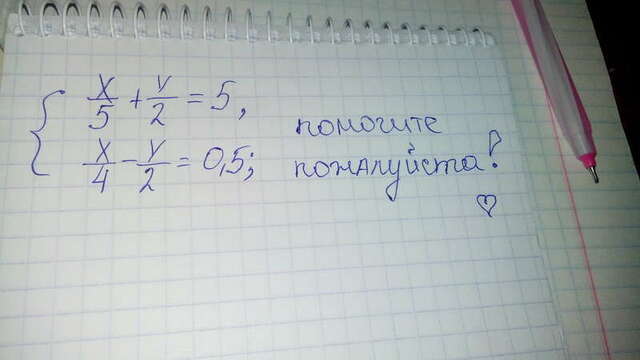 { x/5 + y/2 = 5,
x/4 - y/2 = 0,5;
помогите
пожалуйста!